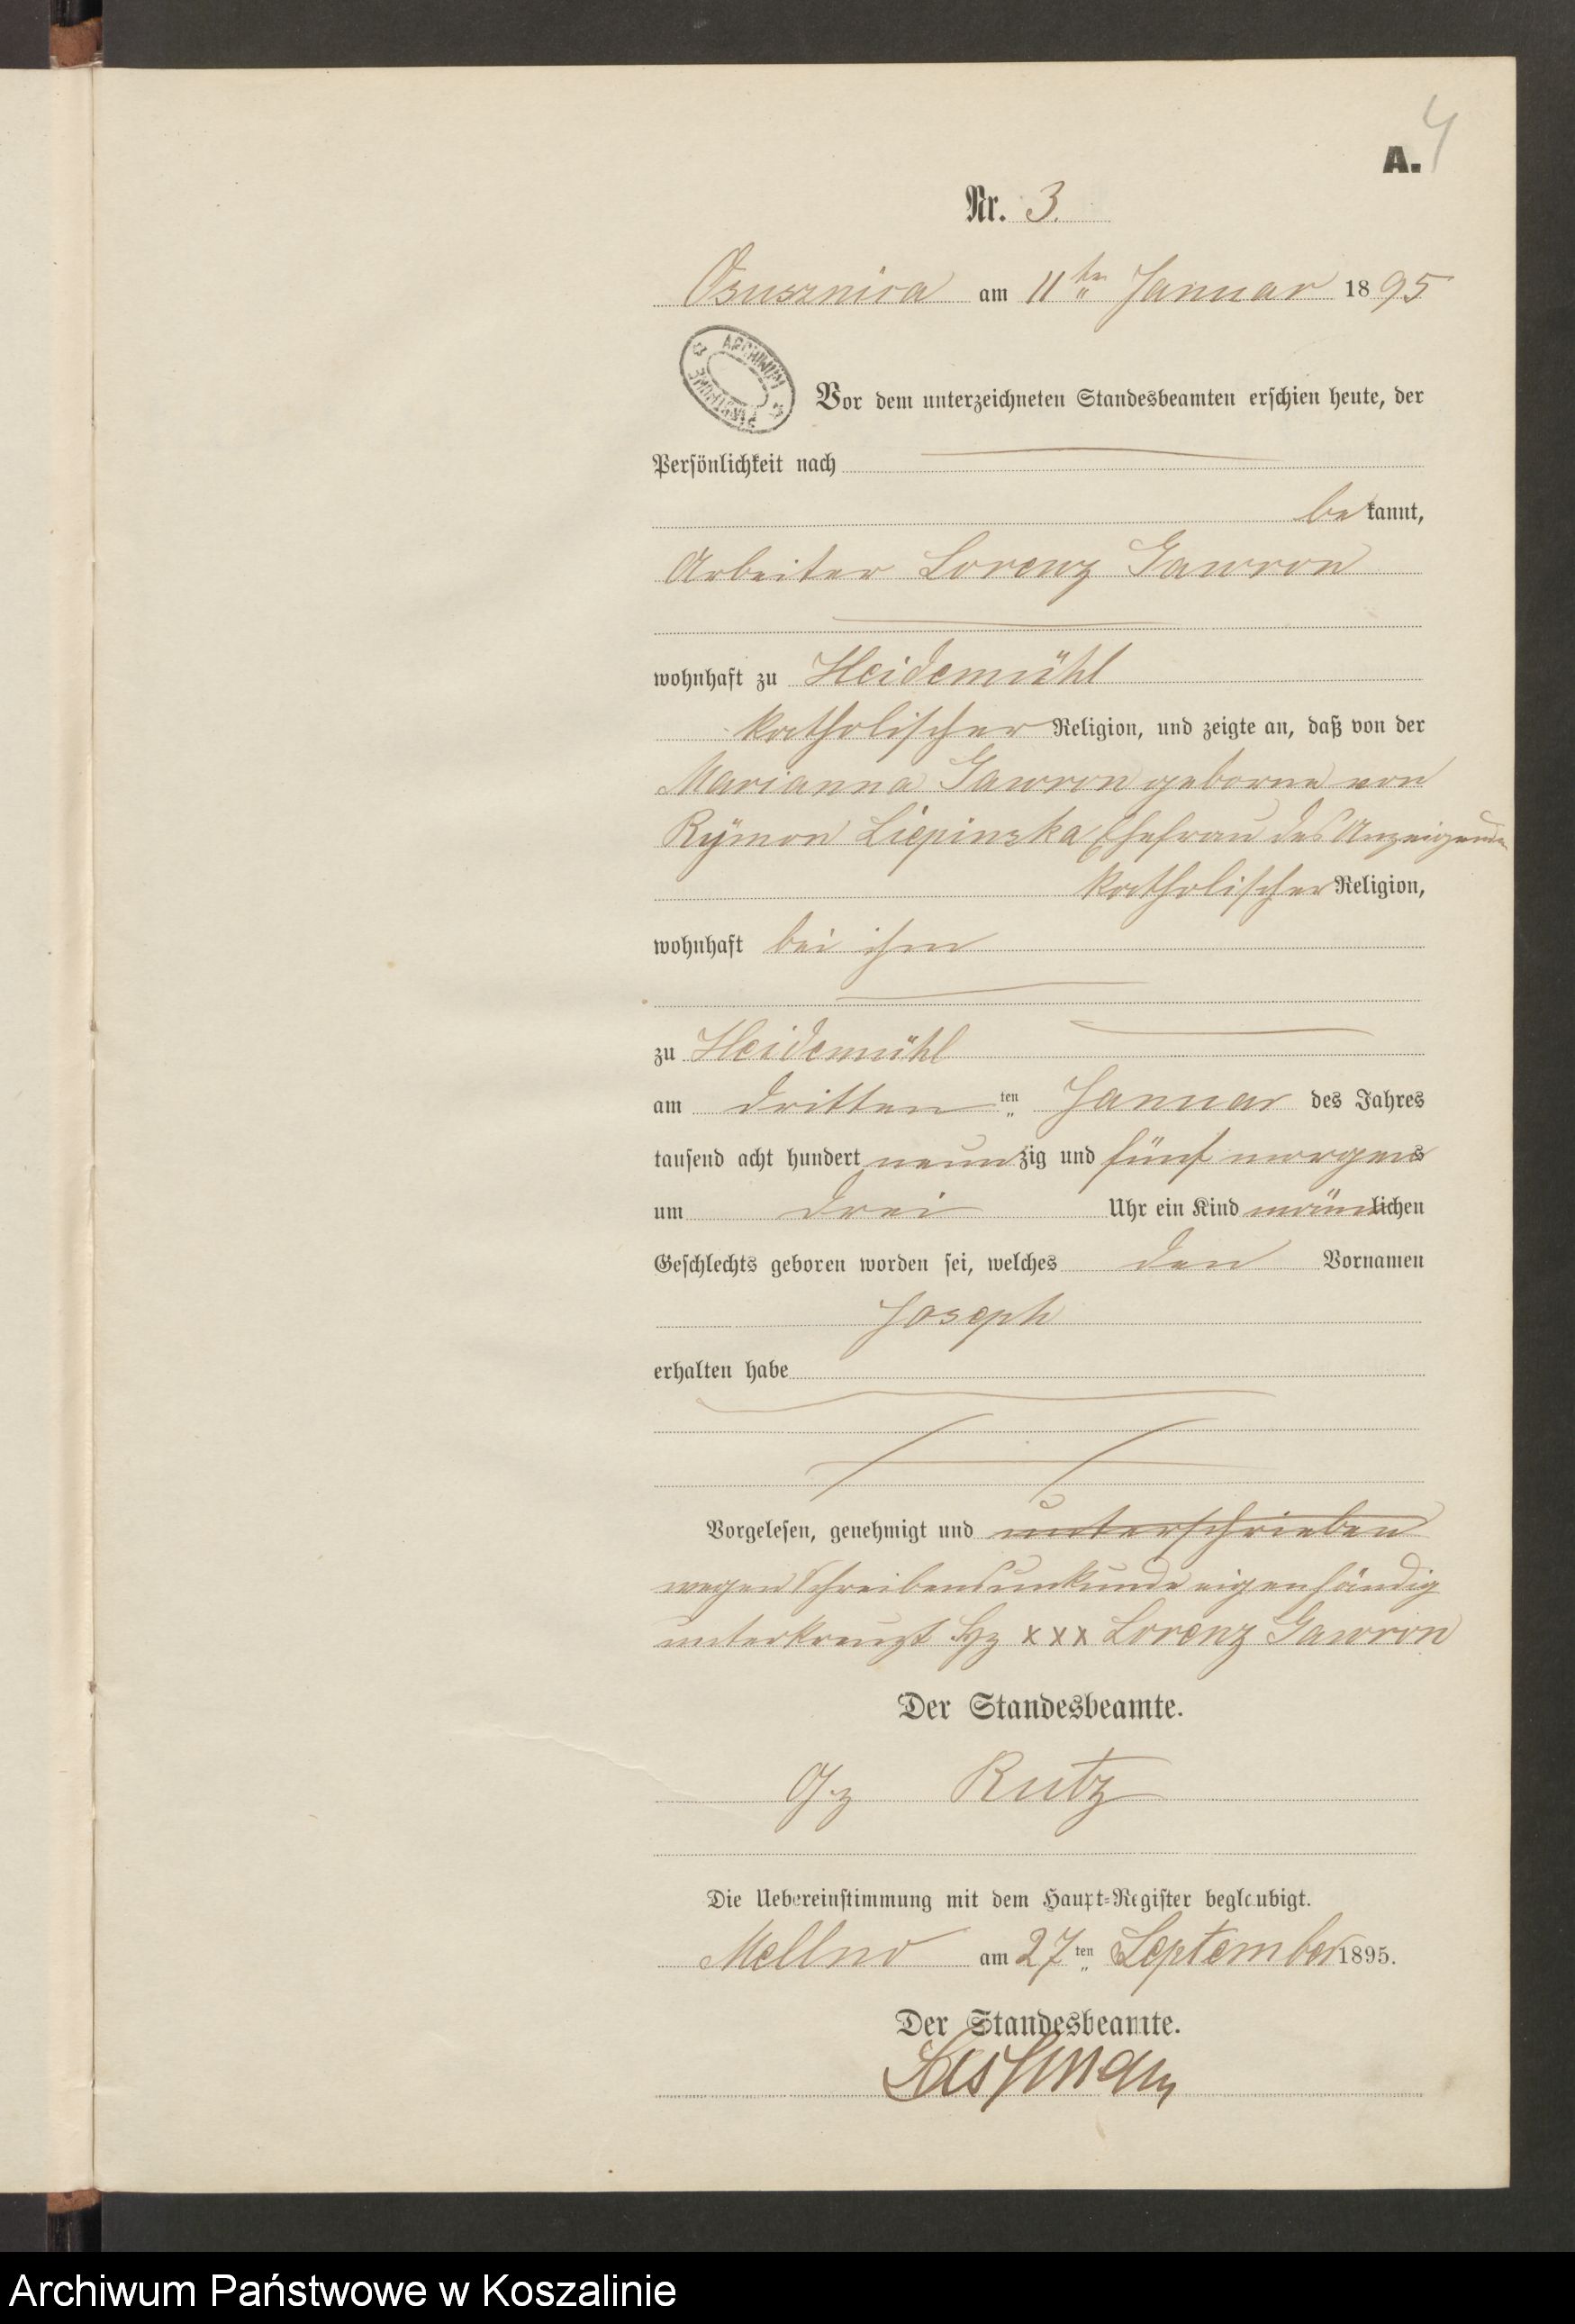 4
A.
Nr. 3.
Osusznica am 11ten Januar 1895
ARCHIWUM PAŃSTWOWE
Vor dem unterzeichneten Standesbeamten erschien heute, der
Persönlichkeit nach
bekannt,
Arbeiter Lorenz Gawron
wohnhaft zu Heidemühl
katholischer Religion, und zeigte an, daß von der
Marianna Gawron geborne von
Rÿmon Liepinska Ehefrau des Anzeigenden
katholischer Religion,
wohnhaft bei ihm
zu Heidemühl
am dritten ten Januar des Jahres
tausend acht hundert neunzig und fünf morgens
um drei Uhr ein Kind männlichen
Geschlechts geboren worden sei, welches den Vornamen
Joseph
erhalten habe
Vorgelesen, genehmigt und unterschrieben
wegen Schreibensunkunde eigenhändig
unterkreuzt Hz xxx Lorenz Gawron
Der Standesbeamte.
gz Rutz
Die Uebereinstimmung mit dem Haupt-Register beglaubigt.
Mellno am 27ten September 1895.
Der Standesbeamte.
Archiwum Państwowe w Koszalinie